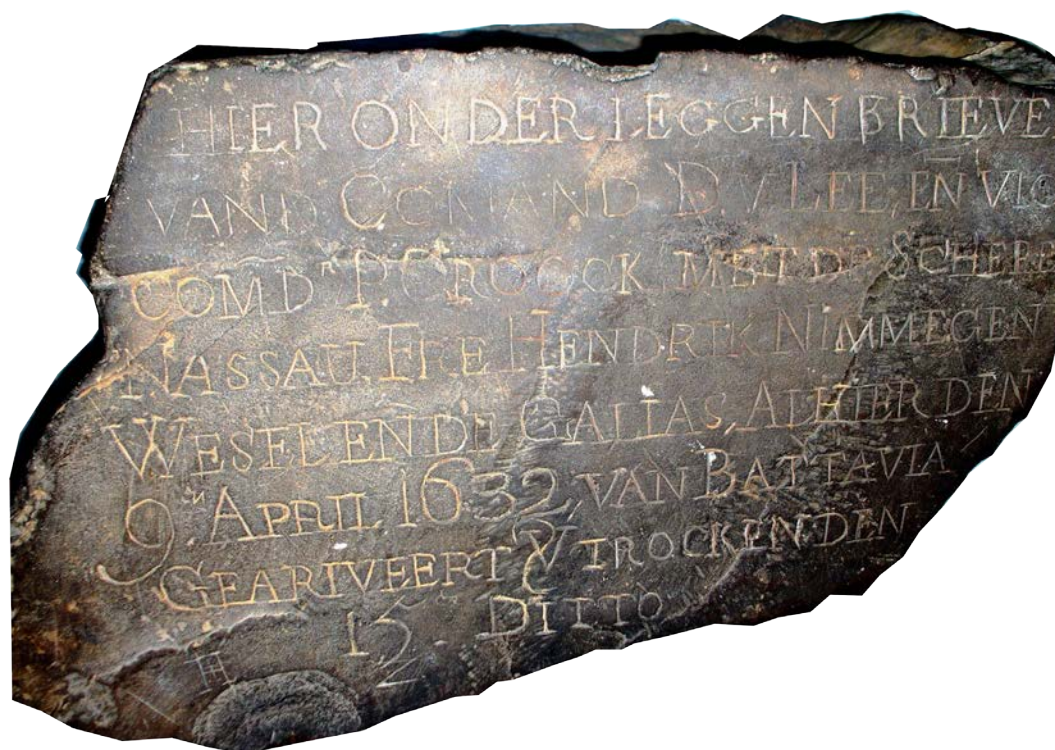 HIER ONDER LEGGEN BRIEVE
VAND COMMAND D.V LEE, EN VIC
COMD.R P. CROOCK, MET D.E SCHEPE
NASSAU. FRE HENDRIK NIMMEGEN
WESEL EN DE GALIAS, ALHIER DEN
9.EN APRIL 1632, VAN BATTAVIA
GEARIVEERT VTROCKEN DEN
12. DITTO